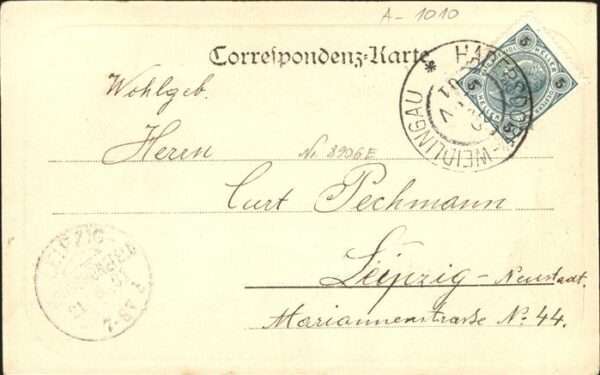 A-1010
Correspondenz-Karte
Wohlgeb.
Herrn
Nr 8906E
Curt Pechmann
Leipzig - Neustadt.
Mariannenstrasse No. 44.
5 HELLER 5
HADERSDORF-WEIDLINGAU *
LEIPZIG
7-8V